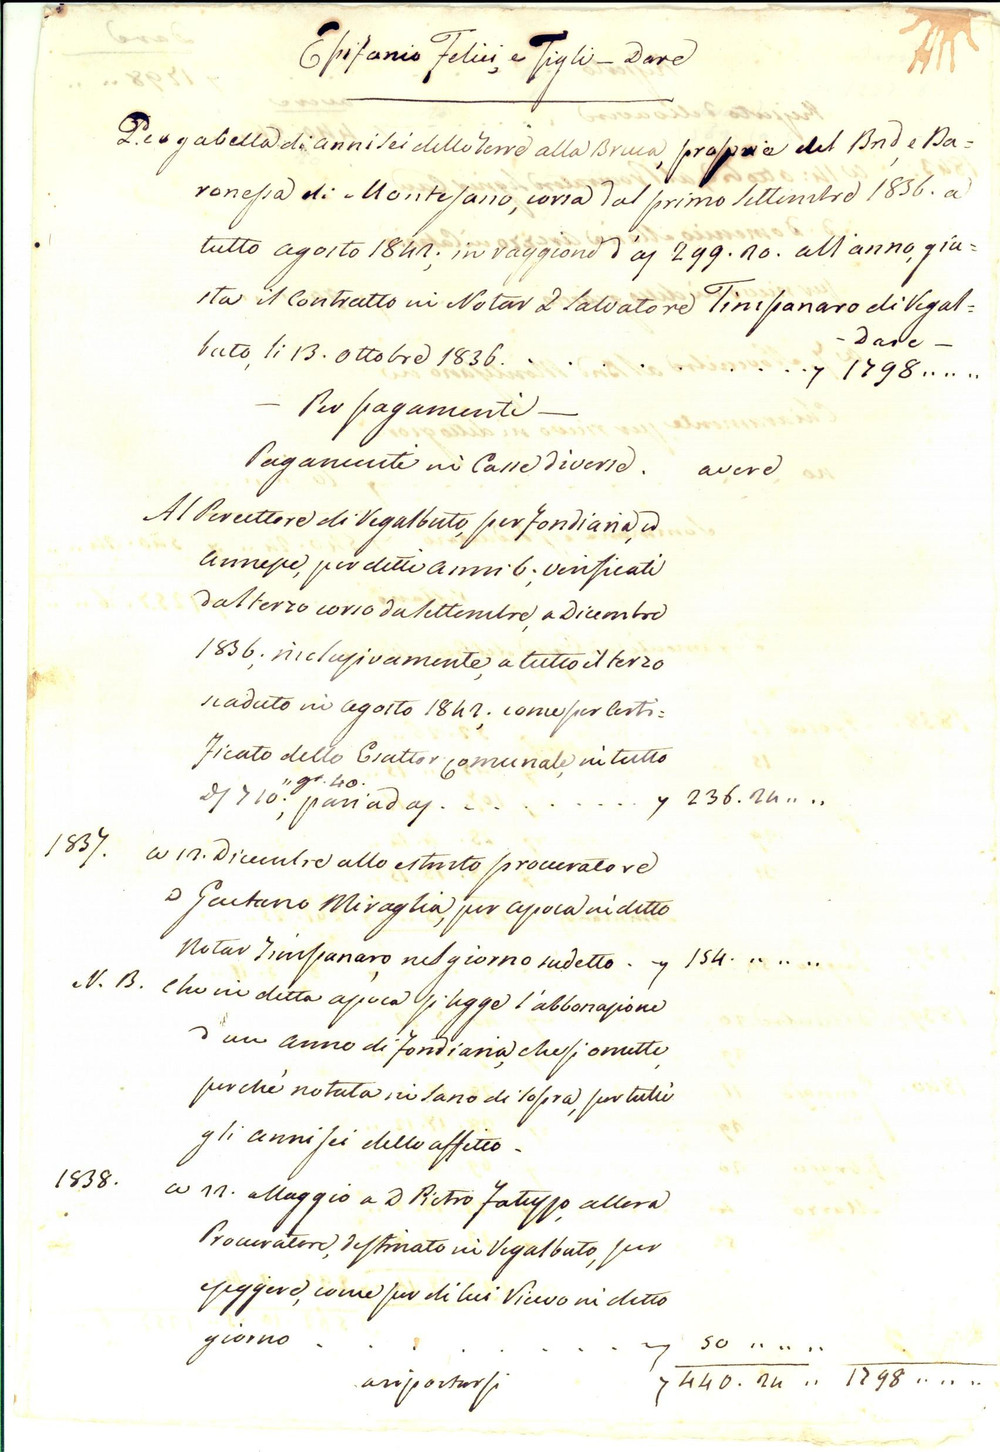 Epifanio Felici, e Figli – Dare
Per gabella di anni sei delle Terre alla Bruca, proprie del Bnē, e Ba=
ronessa di Montesano, corsa dal primo Settembre 1836. a
tutto agosto 1842; in raggione d'oz 299. 20. all'anno, giu=
sta il Contratto in Notar D Salvatore Timpanaro di Regal=
– Dare –
buto, li 13. Ottobre 1836. . . . . . . . . . 1798 .. .. ..
– Per pagamenti –
Pagamenti in Casse diverse. avere
Al Percettore di Regalbuto, per fondiaria, ed
annesse, per detti anni 6; verificati
dal terzo corso da Settembre, a Dicembre
1836; inclusivamente, a tutto il terzo
scaduto in agosto 1842; come per Certi=
ficato dello Esattor Comunale, in tutto
" gr. 40.
D 710; pari ad oz. . . . . . . . 236. 24 .. ..
1837. a 12. Dicembre allo estinto procuratore
D Gaetano Miraglia, per apoca in detto
Notar Timpanaro, nel giorno sudetto . 154. .. .. ..
N. B. Che in detta apoca si legge l'abbonazione
d'un anno di fondiaria, che si omette,
perché notata in sano di sopra, per tutti
gli anni sei dello affitto –
1838. a 12. Maggio a D Pietro allora
Procuratore, destinato in Regalbuto, per
esiggere, come per di lui Ricevo in detto
giorno . . . . . . . . 50 .. .. ..
a riportarsi 440. 24 .. 1798 .. .. ..